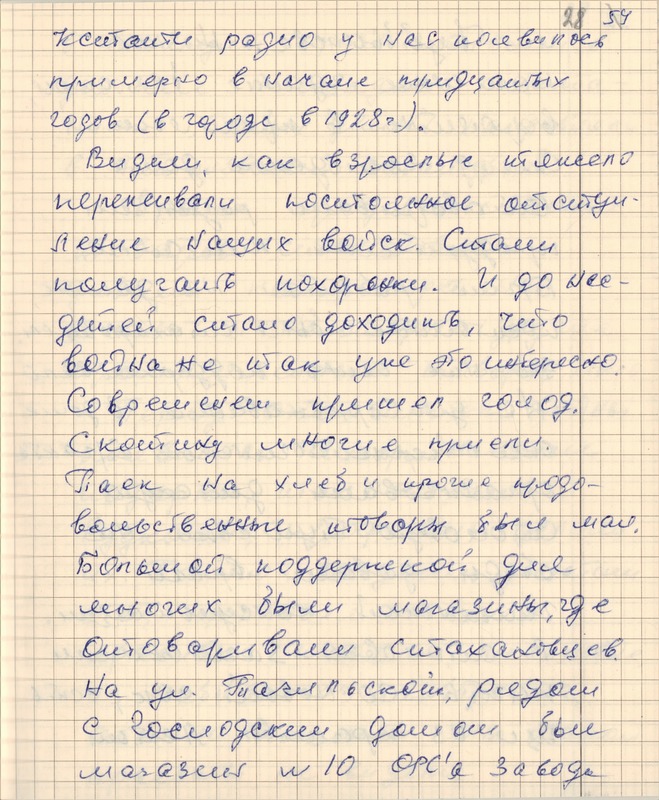 28 54
Кстати радио у нас появилось
примерно в начале тридцатых
годов (в городе в 1928 г.).
Видели, как взрослые тяжело
переживали постоянное отступ-
ление наших войск. Стали
получать похоронки. И до нас-
детей стало доходить, что
война не так уже это интересно.
Со временем пришел голод.
Скотину многие приели.
Паек на хлеб и прочие продо-
вольственные товары был мал.
Большой поддержкой для
многих были магазины, где
отоваривали стахановцев.
На ул. Тагильской, рядом
с Господским домом был
магазин № 10 ОРС'а завода